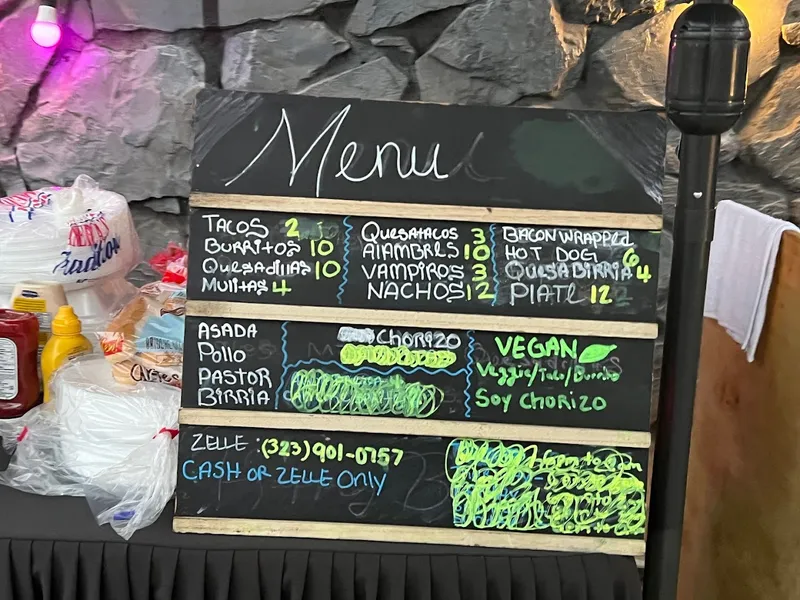 Menu
TACOS 2
BURRITOS 10
QUESADILLAS 10
MULITAS 4
QUESATACOS 3
ALAMBRES 10
VAMPIROS 3
NACHOS 12
BACON WRAPPED
HOT DOG 6
QUESABIRRIA 4
PLATE 12
ASADA
Pollo
PASTOR
BIRRIA
CHORIZO
VEGAN
Veggie/Taco/Burrito
SOY CHORIZO
ZELLE :(323)901-0757
CASH OR ZELLE ONLY